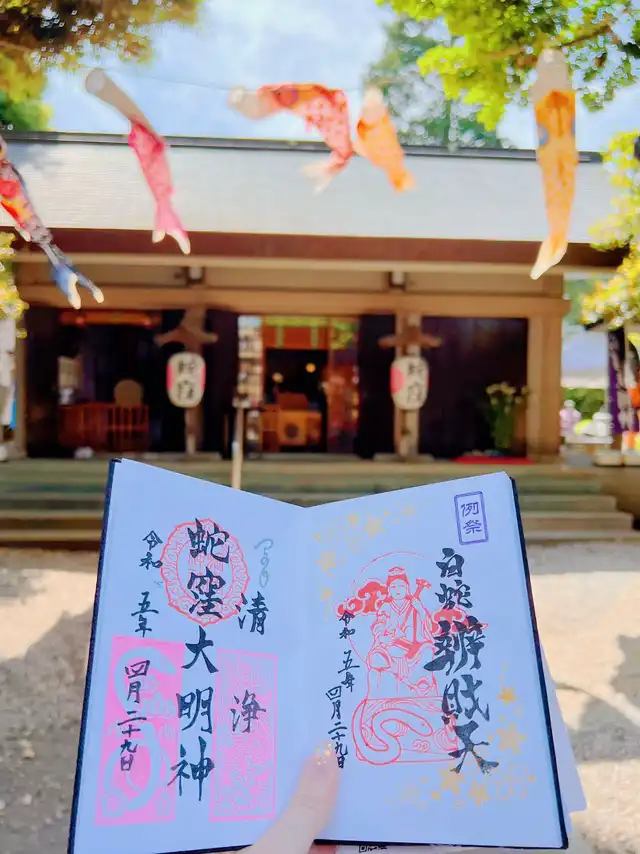 蛇窪
例祭
白蛇辨財天
令和五年四月二十九日
清浄
蛇窪大明神
令和五年四月二十九日